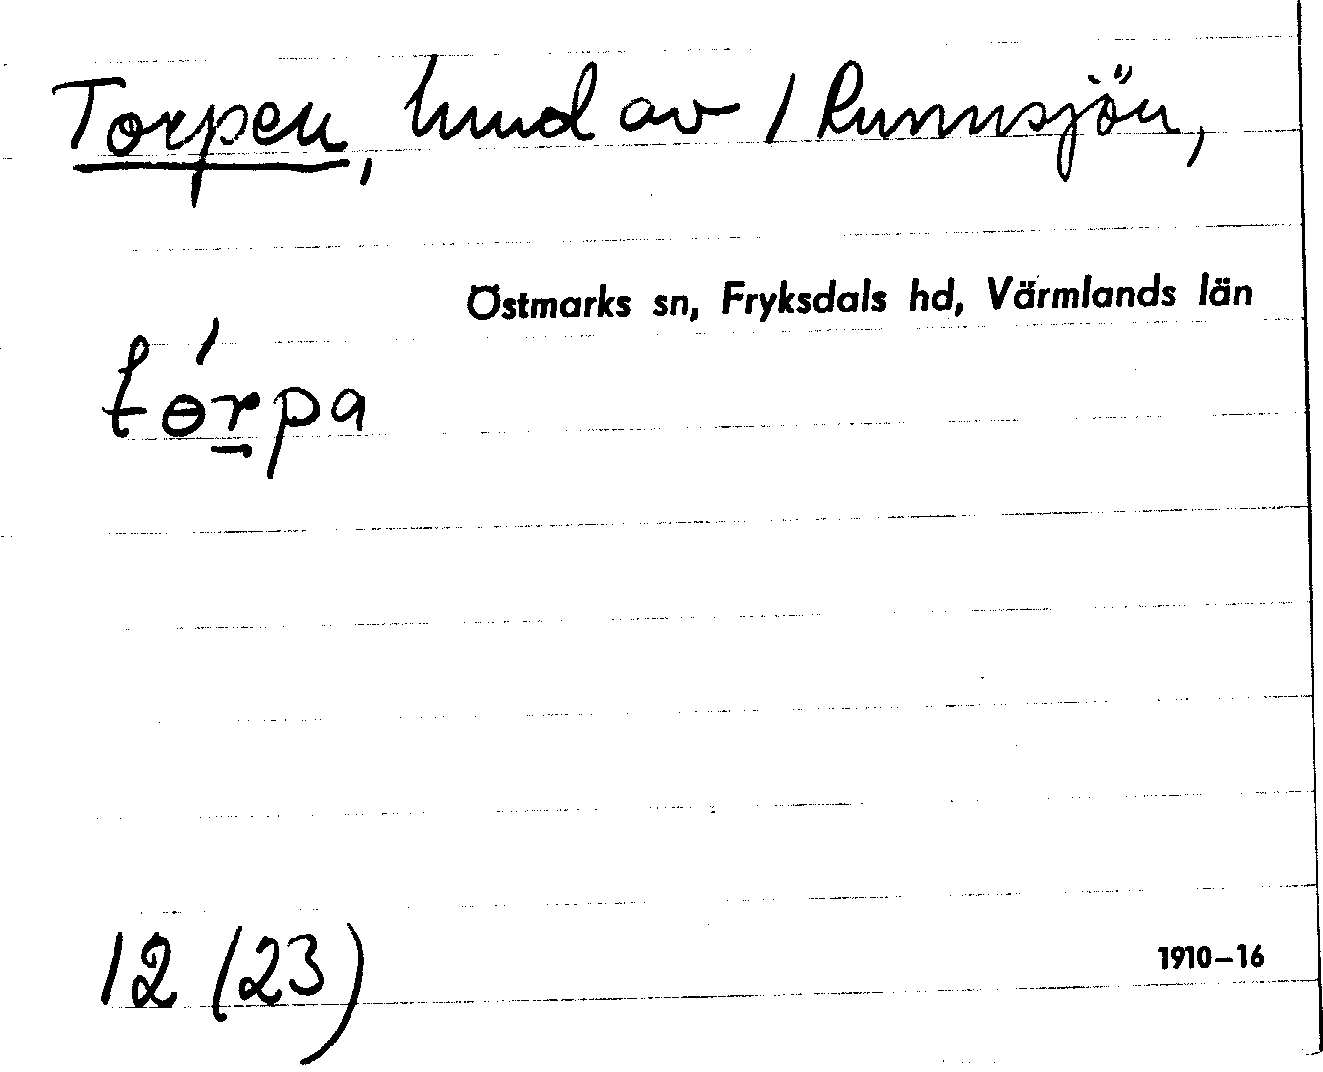 Torpen, lund av / Runnsjön,
Östmarks sn, Fryksdals hd, Värmlands län
tɵ́rpa
12 (23)
1910–16